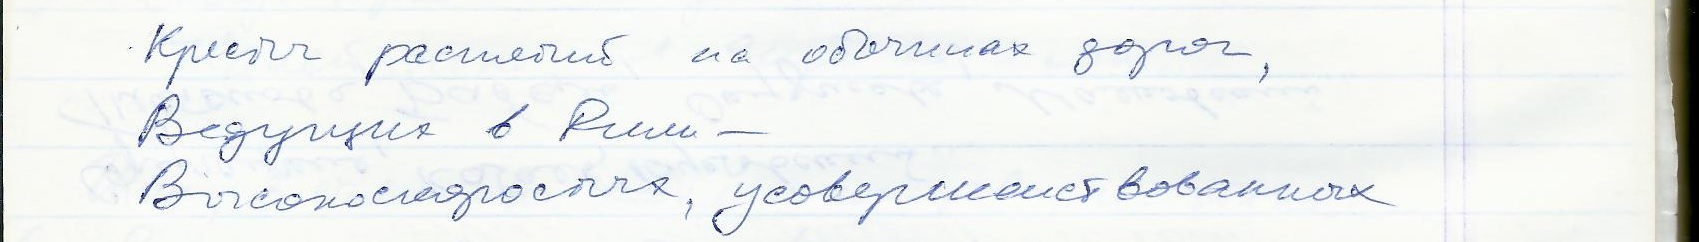 Кресты распятий на обочинах дорог,
Ведущих в Рим —
Высокоскоростных, усовершенствованных